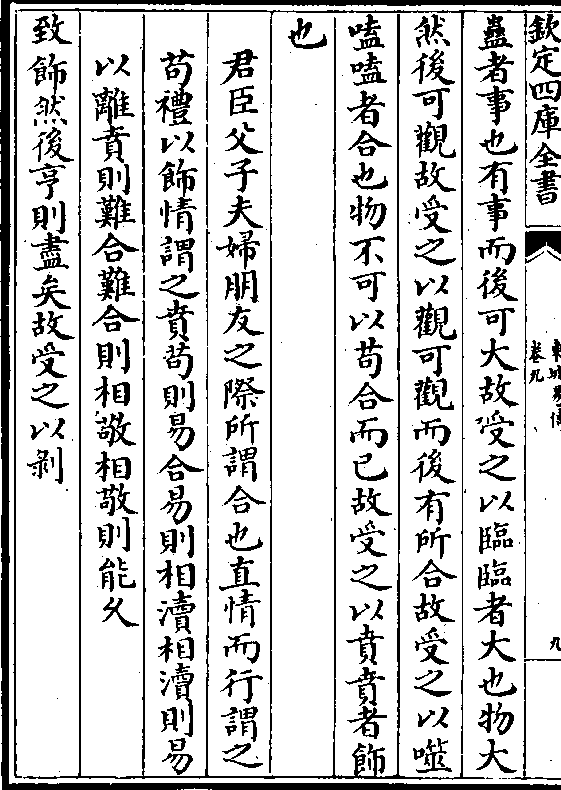 欽定四庫全書
東坡易傳
卷九
九
蠱者事也有事而後可大故受之以臨臨者大也物大
然後可觀故受之以觀可觀而後有所合故受之以噬
嗑嗑者合也物不可以苟合而已故受之以賁賁者飾
也
君臣父子夫婦朋友之際所謂合也直情而行謂之
苟禮以飾情謂之賁苟則易合易則相瀆相瀆則易
以離賁則難合難合則相敬相敬則能久
致飾然後亨則盡矣故受之以剥